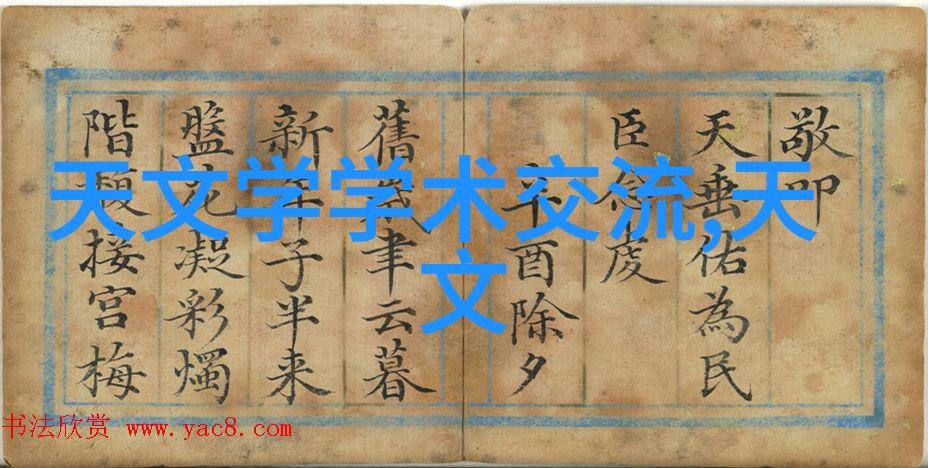 敬叩
天垂佑為民
臣虔
酉除夕
舊歲聿云暮
新年子半来
盤花凝彩燭
階接宮梅
天文学学术交流,天
文
书法欣赏 www.yac8.com